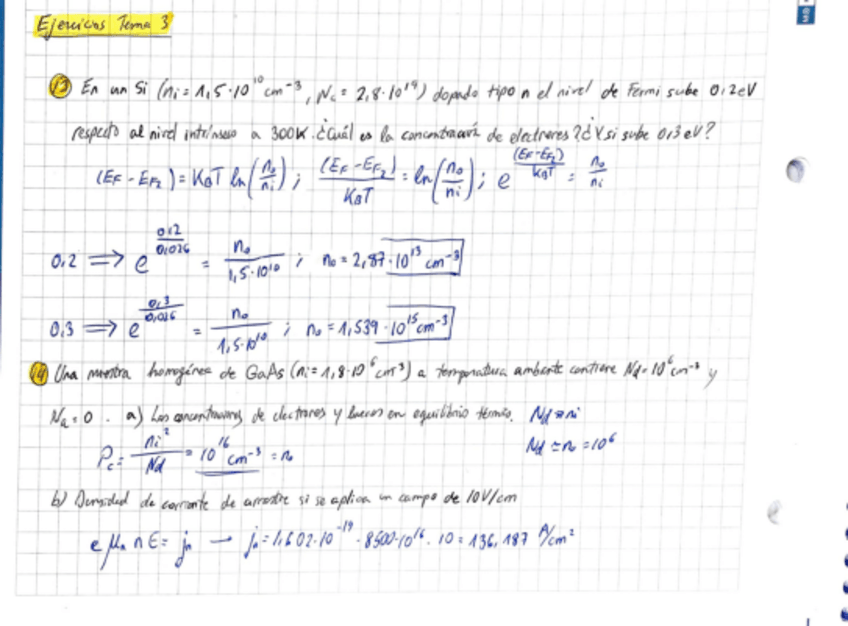 Ejercicios Tema 3
13 En un Si (ni = 1,5·10^10 cm^-3, Nc = 2,8·10^19) dopado tipo n el nivel de Fermi sube 0,2eV
respecto al nivel intrínseco a 300K. ¿Cuál es la concentración de electrones? ¿Y si sube 0,3eV?
(EF - EFi) = KBT ln(no/ni) ; (EF - EFi)/KBT = ln(no/ni) ; e^((EF-EFi)/KBT) = no/ni
0,2 ⟹ e^(0,2/0,026) = no/1,5·10^10 ; no = 2,87·10^13 cm^-3
0,3 ⟹ e^(0,3/0,026) = no/1,5·10^10 ; no = 1,539·10^15 cm^-3
14 Una muestra homogénea de GaAs (ni = 1,8·10^6 cm^-3) a temperatura ambiente contiene Nd = 10^6 cm^-3 y
Na = 0. a) Las concentraciones de electrones y huecos en equilibrio térmico. Nd ≈ ni
Po = ni²/Nd = 10^16 cm^-3 = no Nd ≃ no = 10^6
b) Densidad de corriente de arrastre si se aplica un campo de 10V/cm
e μn n E = jn → jn = 1,602·10^-19 · 8500·10^16 · 10 = 136,187 A/cm²